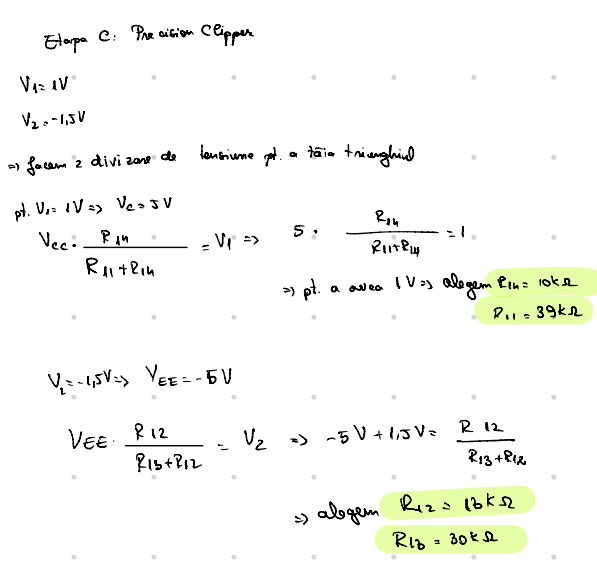 Etapa C: Precision Clipper
V1 = 1V
V2 = -1,5V
=> facem 2 divizoare de tensiune pt. a tăia triunghiul
pt. V1 = 1V => Vc = 5V
Vcc · R14 / (R11 + R14) = V1 => 5 · R14 / (R11 + R14) = 1
=> pt. a avea 1V => alegem R14 = 10kΩ
R11 = 39kΩ
V2 = -1,5V => VEE = -5V
VEE · R12 / (R13 + R12) = V2 => -5V + 1,5V = R12 / (R13 + R12)
=> alegem R12 = 13kΩ
R13 = 30kΩ